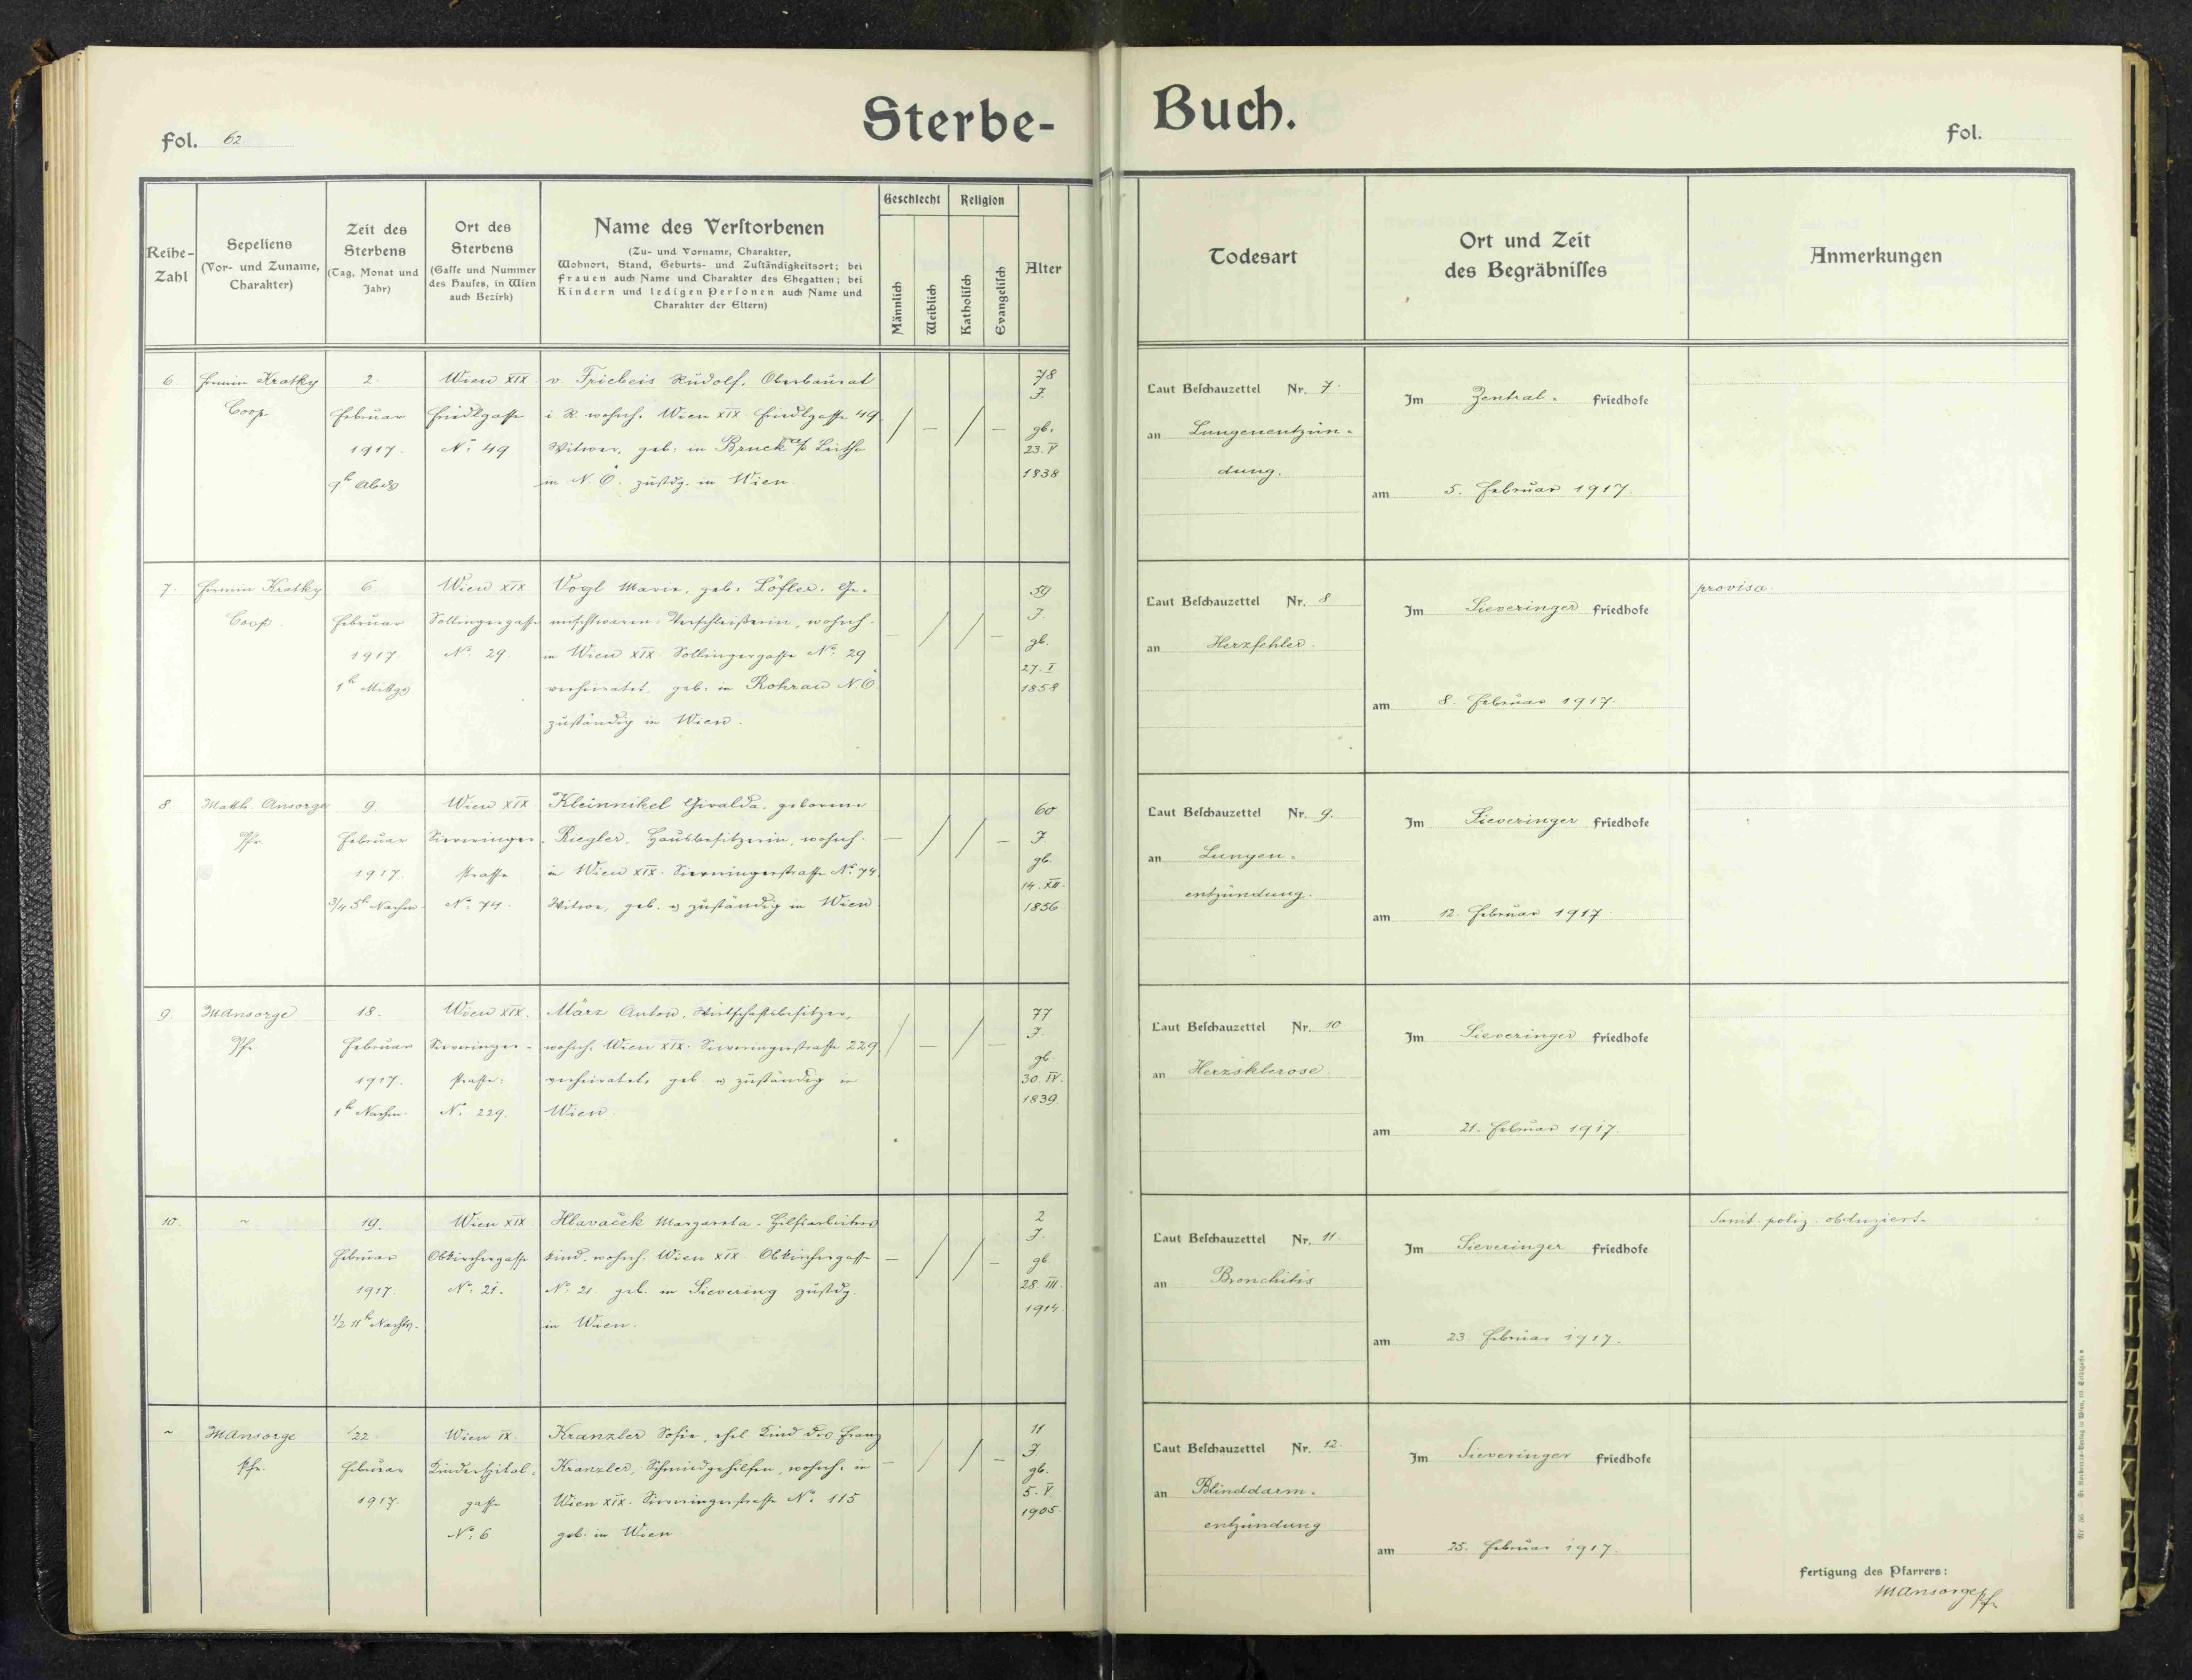 Sterbe-
Buch.
Fol. 62
Fol.
Reihe-
Zahl
Sepeliens
(Vor- und Zuname,
Charakter)
Zeit des
Sterbens
(Tag, Monat und
Jahr)
Ort des
Sterbens
(Gasse und Nummer
des Hauses, in Wien
auch Bezirk)
Name des Verstorbenen
(Zu- und Vorname, Charakter,
Wohnort, Stand, Geburts- und Zuständigkeitsort; bei
Frauen auch Name und Charakter des Ehegatten; bei
Kindern und ledigen Personen auch Name und
Charakter der Eltern)
Geschlecht
Männlich
Weiblich
Religion
Katholisch
Evangelisch
Alter
Todesart
Ort und Zeit
des Begräbnisses
Anmerkungen
6.
Firmin Kratky
Coop.
2.
Februar
1917.
9h Abds
Wien XIX.
Friedlgasse
No 49
v. Friebeis Rudolf, Oberbaurat
i. R. wohnh. Wien XIX. Friedlgasse 49
Witwer, geb. in Bruck a/ Leitha
in N. Ö. zustdg. in Wien.
/ — / —
78
J.
gb.
23. V
1838
Laut Beschauzettel Nr. 7.
an Lungenentzün-
dung.
Im Zentral- Friedhofe
am 5. Februar 1917.
7.
Firmin Kratky
Coop.
6
Februar
1917
1h Mittgs
Wien XIX
Sollingergasse
No. 29.
Vogl Marie, geb. Löfler, Ge-
mischtwaren-Verschleißerin, wohnh.
in Wien XIX Sollingergasse No. 29
verheiratet, geb. in Rohrau N.Ö
zuständig in Wien.
— / / —
59
J.
gb.
27. I
1858
Laut Beschauzettel Nr. 8
an Herzfehler.
Im Sieveringer Friedhofe
am 8. Februar 1917.
provisa.
8
Matth. Ansorge
Pfr.
9.
Februar
1917.
3/4 5h Nachm.
Wien XIX
Sieveringer-
strasse
No. 74.
Kleinnikel Giralda, geborene
Riegler, Hausbesitzerin, wohnh.
in Wien XIX. Sieveringerstrasse No. 74.
Witwe, geb. u zuständig in Wien
— / / —
60
J.
gb.
14. XII.
1856
Laut Beschauzettel Nr. 9.
an Lungen-
entzündung.
Im Sieveringer Friedhofe
am 12. Februar 1917.
9.
MAnsorge
Pfr.
18.
Februar
1917.
1h Nachm.
Wien XIX.
Sieveringer-
strasse
No. 229.
März Anton, Wirtschaftsbesitzer,
wohnh. Wien XIX. Sieveringerstrasse 229
verheiratet, geb. u zuständig in
Wien.
/ — / —
77
J.
gb
30. IV.
1839.
Laut Beschauzettel Nr. 10
an Herzsklerose.
Im Sieveringer Friedhofe
am 21. Februar 1917.
10.
~
19.
Februar
1917.
1/2 11h Nachts.
Wien XIX
Obkirchergasse
No. 21.
Hlavaček Margareta, Hilfsarbeiters
kind, wohnh. Wien XIX. Obkirchergasse
No. 21. geb. in Sievering zustdg.
in Wien.
— / / —
2
J.
gb.
28. III.
1914.
Laut Beschauzettel Nr. 11.
an Bronchitis
Im Sieveringer Friedhofe
am 23. Februar 1917.
Sanit. poliz. obduziert.
~
MAnsorge
Pfr.
22.
Februar
1917.
Wien IX.
Kinderspital-
gasse
No. 6
Kranzler Sofie, ehel. Kind des Franz
Kranzler, Schmiedgehilfen, wohnh. in
Wien XIX. Sieveringerstrasse No. 115
geb. in Wien
— / / —
11
J
gb.
5. V.
1905.
Laut Beschauzettel Nr. 12.
an Blinddarm-
entzündung
Im Sieveringer Friedhofe
am 25. Februar 1917.
Fertigung des Pfarrers:
MAnsorge Pfr.